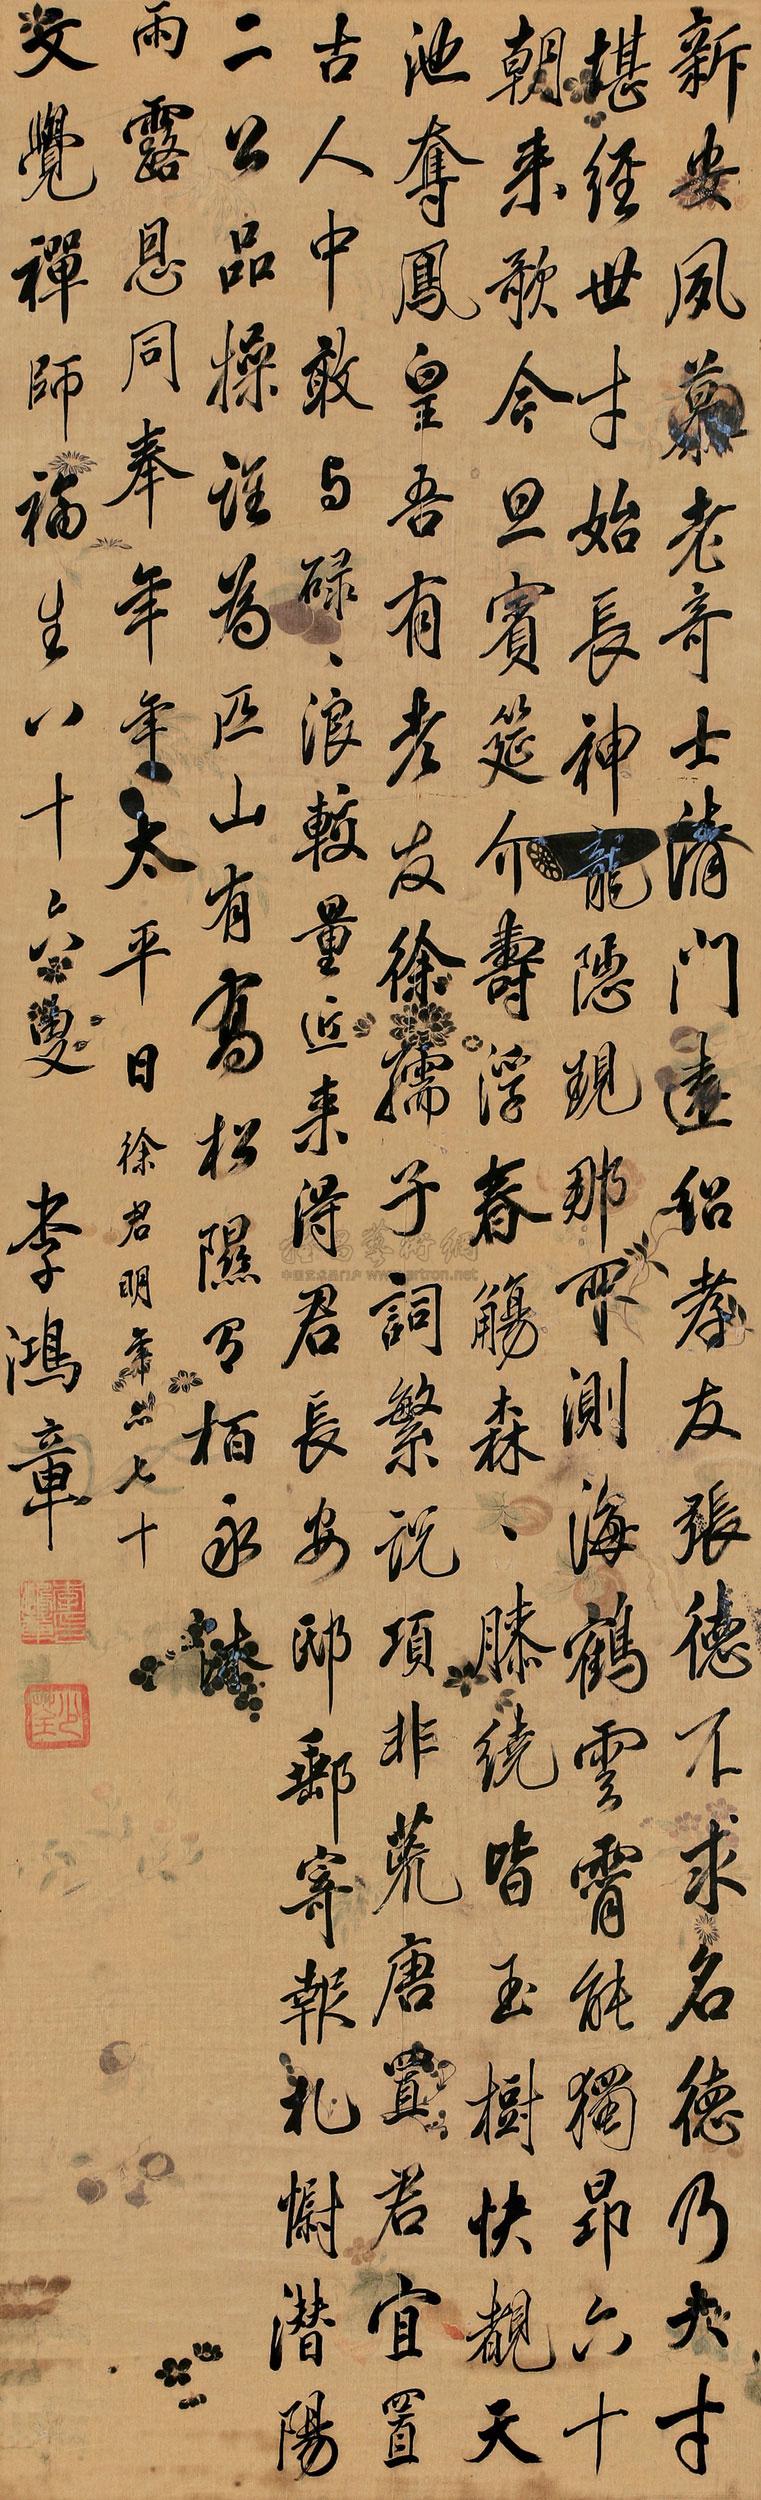 新安夙慕老奇士清門遠紹孝友張德不求名德乃大才
堪經世才始長神龍隱現那可測海鶴雲霄能獨昂六十
朝來歌令旦賓筵介壽浮春觴森、膝繞皆玉樹快覩天
池奪鳳皇吾有老友徐孺子詞繁説項非荒唐置君宜置
古人中敢与碌、浪較量近来得君長安邸郵寄報札慰潜陽
二公品操誰為匹山有喬松隰有柏永
雨露恩同奉年年太平日徐君明年亦七十
文覺禪師福生八十六叟 李鴻章